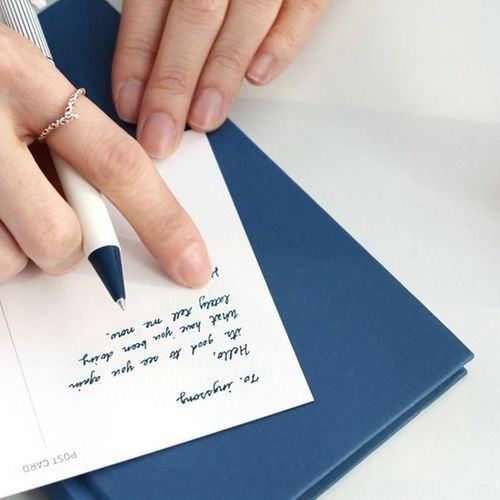 To. ingssong
Hello,
it's good to see you again
What have you been doing
lately tell me now.
POST CARD